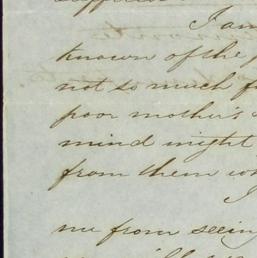 I am
known of the
not so much f
poor mother's
mind might
from them wh
I
me from seein